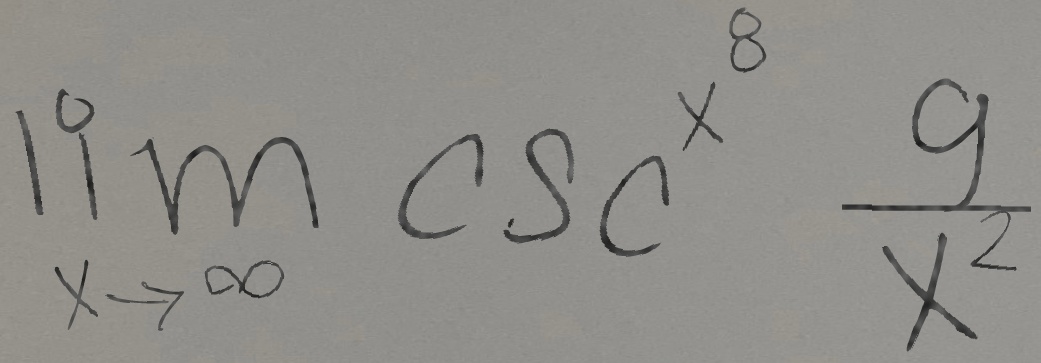 lim x→∞ csc^{x^8} \frac{9}{x^2}